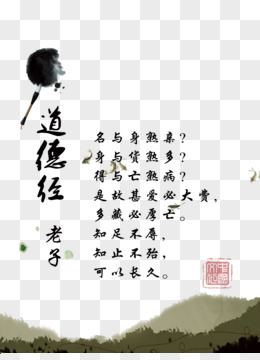 道德经
老子
名与身熟亲?
身与货熟多?
得与亡熟病?
是故甚爱必大费,
多藏必厚亡。
知足不辱,
知止不殆,
可以长久。